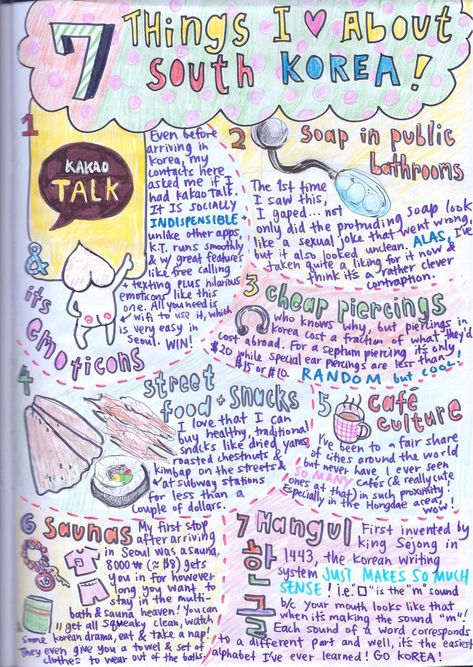 7 THINGS I ♥ ABOUT
SOUTH KOREA!
1
KAKAO
TALK
& its
emoticons
Even before
arriving in
Korea, my
contacts here
asked me if I
had kakao talk.
IT IS SOCIALLY
INDISPENSIBLE +
unlike other apps,
K.T. runs smoothly
& w/ great features
like free calling
+ texting plus hilarious
emoticons like this
one. All you need is
wifi to use it, which
is very easy in
Seoul. WIN!
2 soap in public
bathrooms
The 1st time
I saw this,
I gaped... not
only did the protruding soap look
like a sexual joke that went wrong
but it also looked unclean. ALAS, I've
taken quite a liking for it now &
think it's a rather clever
contraption.
3 cheap piercings
who knows why, but piercings in
Korea cost a fraction of what they'd
cost abroad. For a septum piercing it's only
$20 while special ear piercings are less than
$15 or $10. RANDOM but COOL!
4 street
food + snacks
I love that I can
buy healthy, traditional
snacks like dried yams,
roasted chestnuts &
kimbap on the streets &
at subway stations
for less than a
couple of dollars.
5 café
culture
I've been to a fair share
of cities around the world
but never have I ever seen
SO MANY cafés (& really cute
ones at that) in such proximity!
Especially in the Hongdae area,
wow!
6 Saunas
My first stop
after arriving
in Seoul was a sauna.
8000 ₩ (≈ $8) gets
you in for however
long you want to
stay in the multi-
bath & sauna heaven! You can
get all squeaky clean, watch
some korean drama, eat & take a nap!
They even give you a towel & set of
clothes to wear out of the baths!
7 Hangul
한글
First invented by
King Sejong in
1443, the Korean writing
system JUST MAKES SO MUCH
SENSE! i.e. "ㅁ" is the "m" sound
b/c your mouth looks like that
when it's making the sound "m"!
Each sound of a word corresponds
to a different part and well, it's the easiest
alphabet I've ever learned! Go KOREA!